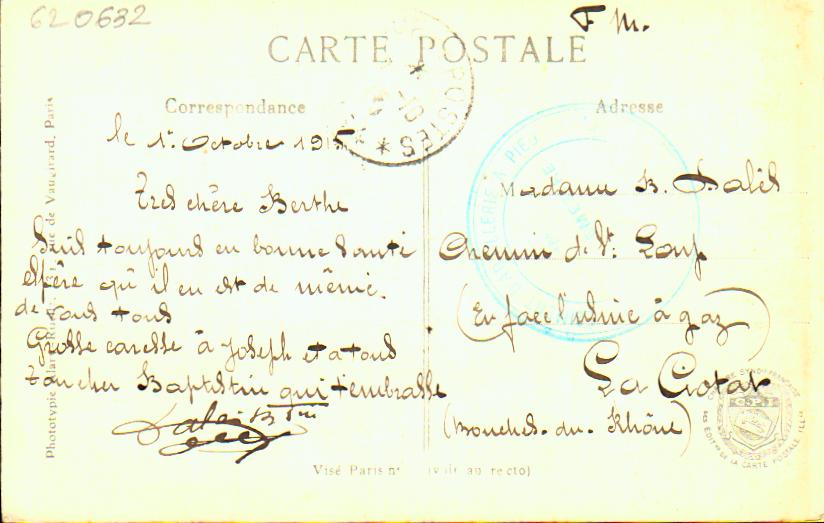 620632
F. M.
CARTE POSTALE
Correspondance
Adresse
POSTES
le 1er Octobre 1915
Très chère Berthe
Suis toujours en bonne santé
espère qu'il en est de même
de vous tous
Grosse caresse à Joseph et a tous
Ton cher Baptistin qui t'embrasse
Madame B.
Chemin de St Loup
(En face l'usine à gaz)
La Ciotat
(Bouches-du-Rhône)
ARTILLERIE A PIED
Phototypie
de Vaugirard, Paris
Visé Paris n°
au recto)